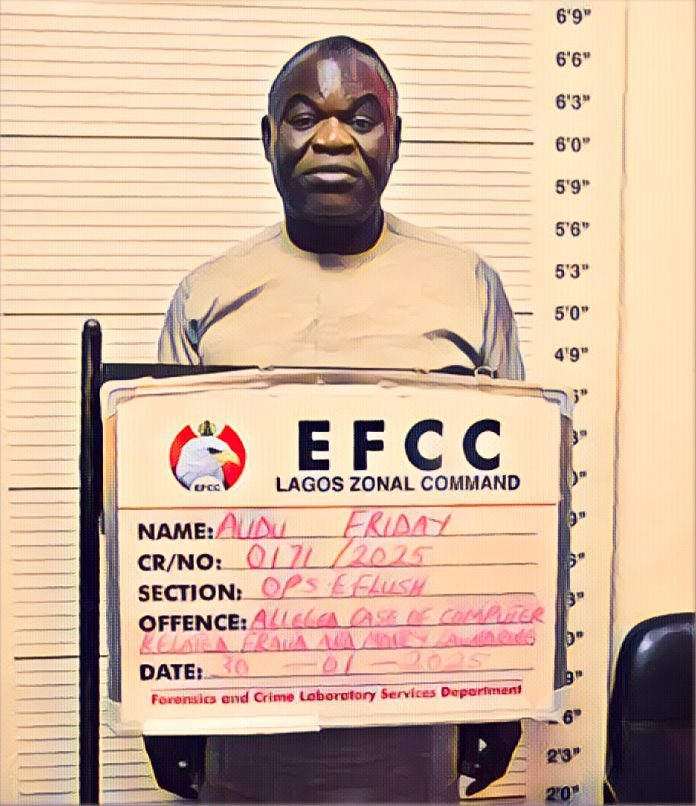 6'9"
6'6"
6'3"
6'0"
5'9"
5'6"
5'3"
5'0"
4'9"
EFCC
LAGOS ZONAL COMMAND
EFCC
NAME: AUDU FRIDAY
CR/NO: 0171/2025
SECTION: OPS-EFLUSH
OFFENCE: ALLEGED CASE OF COMPUTER
RELATED FRAUD AND MONEY LAUNDERING
DATE: 30-01-2025
Forensics and Crime Laboratory Services Department
2'3"
2'0"